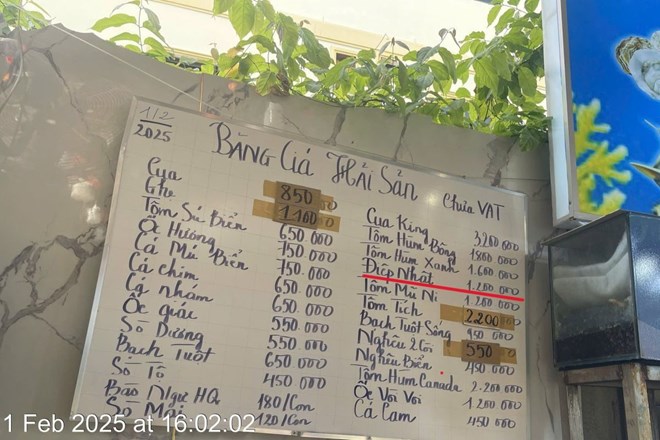 1/2
2025
BẢNG Giá Hải Sản
Chưa VAT
Cua 850
Ghẹ 1.100
Tôm Sú Biển 650.000
Ốc Hương 750.000
Cá Mú Biển 750.000
Cá chim 650.000
Cá nhám 650.000
Ốc giác 550.000
Sò Dương 550.000
Bạch Tuột 650.000
Sò Tộ 450.000
Bào Ngư HQ 180/Con
120/Con
Cua King 3200.000
Tôm Hùm Bông 1800.000
Tôm Hùm Xanh 1.600.000
Điệp Nhật 1.200.000
Tôm Mũ Ni 1.200.000
Tôm Tích 2.200
Bạch Tuột Sống 950.000
Nghêu 2 Cồi 550
Nghêu Biển 480.000
Tôm Hùm Canada 2.200.000
Ốc Vòi Voi 1.200.000
Cá Cam 450.000
1 Feb 2025 at 16:02:02